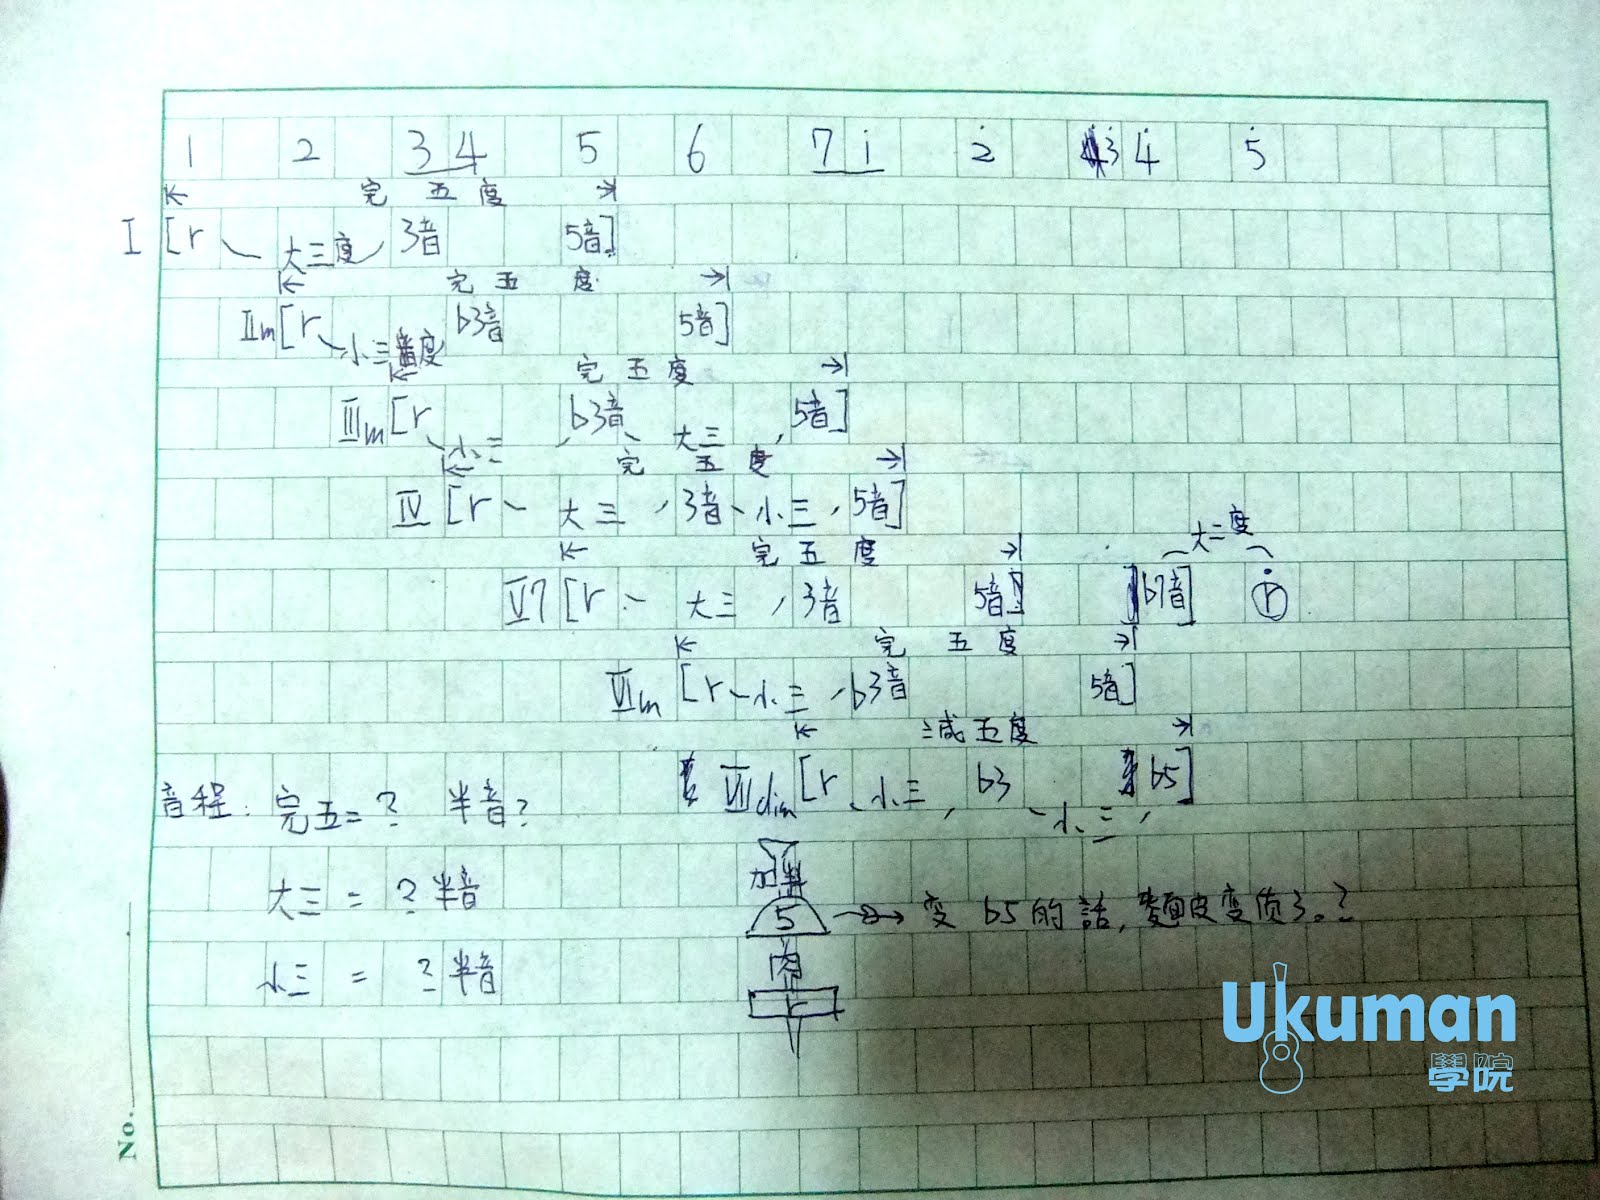 1 2 3 4 5 6 7 i 2̇ 3̇ 4̇ 5̇
完 五 度
I [r 大三度 3音 5音]
完 五 度
IIm [r 小三度 b3音 5音]
完 五 度
IIIm [r 小三 b3音 大三 5音]
完 五 度
IV [r 大三 3音 小三 5音]
完 五 度 大二度
V7 [r 大三 3音 5音] b7音] ṙ
完 五 度
VIm [r 小三 b3音 5音]
減五度
VIIdim [r 小三 b3 小三 b5]
音程: 完五=? 半音?
大三 = ? 半音
小三 = ? 半音
加料
5 → 变 b5 的話, 麵皮变质了。?
肉
r
Ukuman
學院
No.